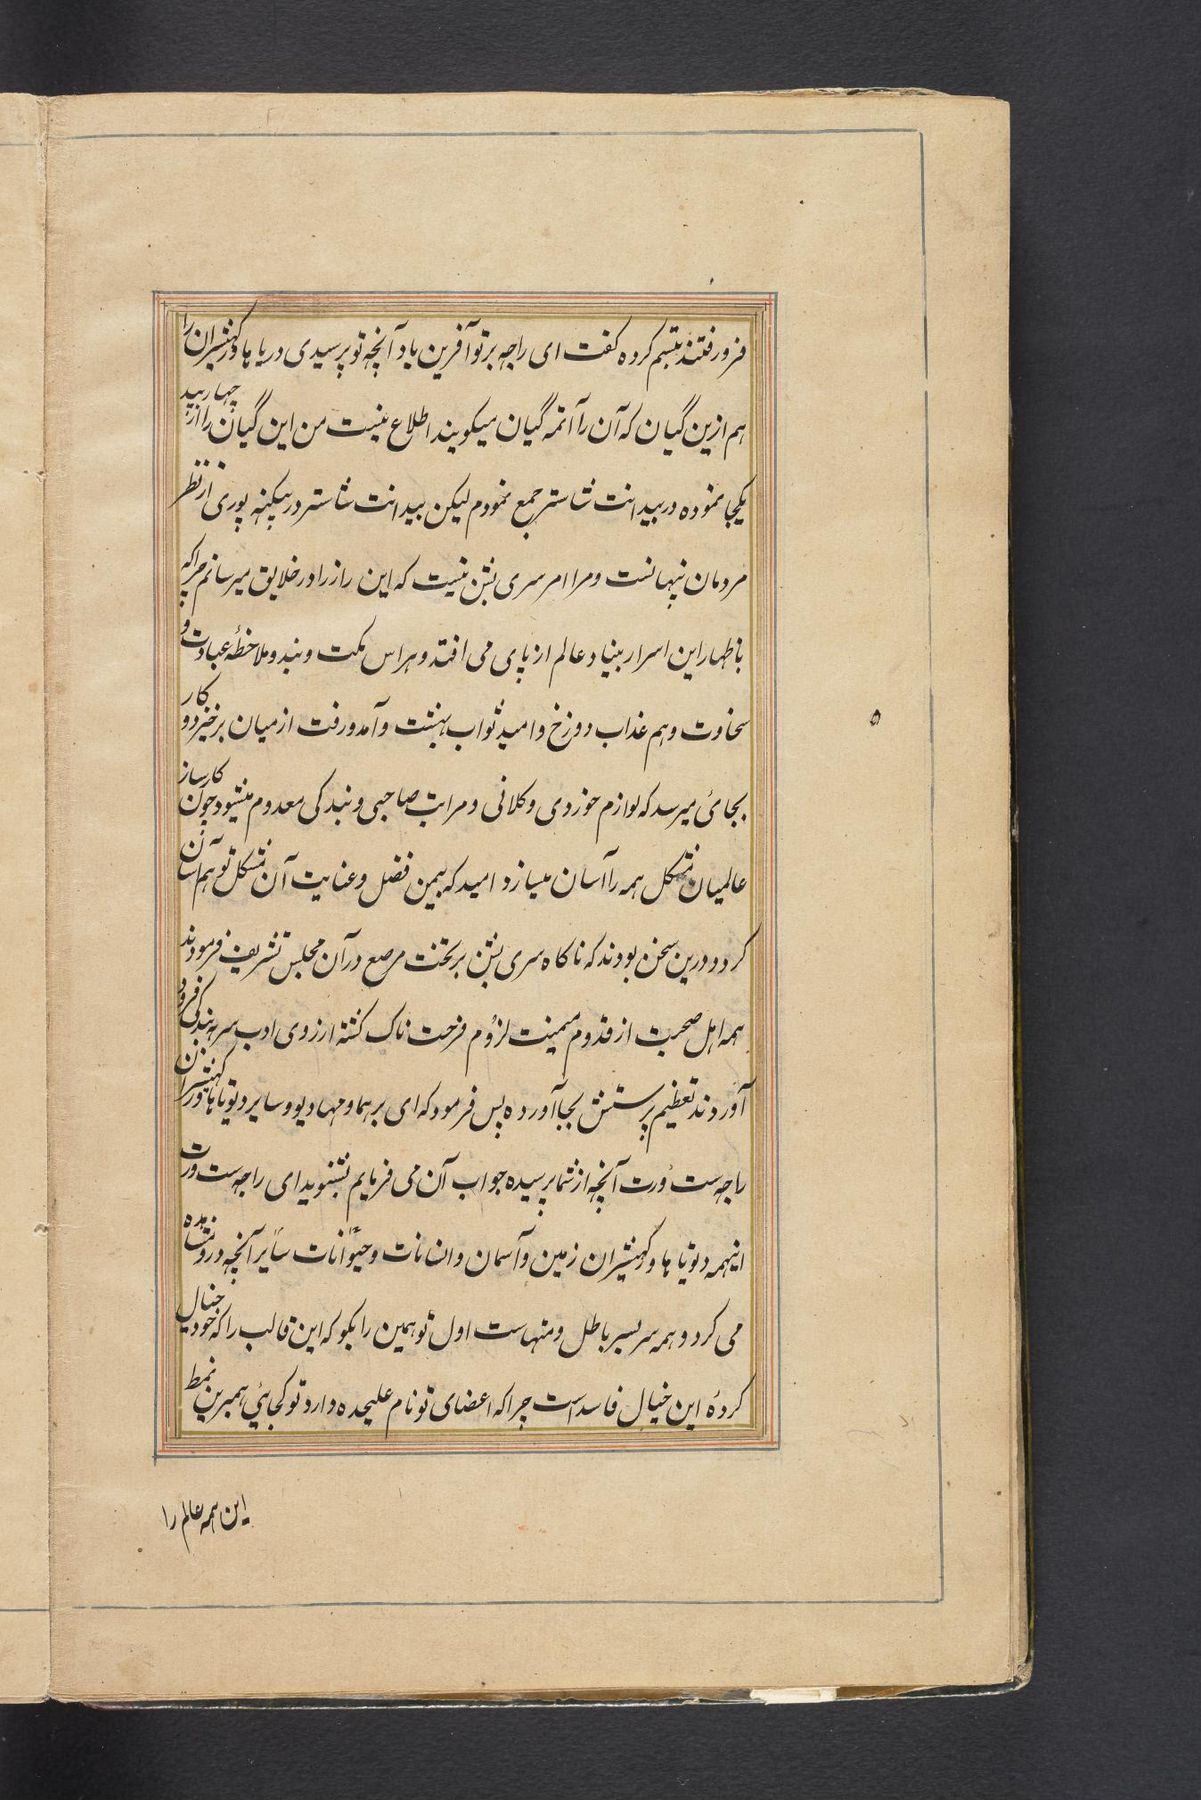 فرو رفتند تبسم کرده گفت ای راجه بر تو آفرین باد آنچه تو پرسیدی دریاها و رکهیشران را
هم ازین گیان که آن را آتمه گیان میکویند اطلاع نیست من این گیان را از چهار بید
یکجا نموده در بیدانت شاستر جمع نمودم لیکن بیدانت شاستر در بیکنهه پوری از نظر
مردمان پنهانست و مرا امر سری بشن نیست که این راز را در خلایق میرسانم چرا که
باظهار این اسرار بنیاد عالم از پای می افتد و هراس مکت و بند و ملاحظهٔ عبادت و
سخاوت وهم عذاب دوزخ و امید ثواب بهشت و آمد و رفت از میان برخیزد و کار
بجائ میرسد که لوازم خوردی و کلانی و مراتب صاحبی و بندکی معدوم میشود چون کارساز
عالمیان مشکل همه را آسان میسازد امید که بیمن فضل و عنایت آن مشکل تو هم آسان
کردد درین سخن بودند که ناکاه سری بشن بر تخت مرصع در آن مجلس تشریف فرمودند
همه اهل صحبت از قدوم میمنت لزوم فرحت ناک کشته از روی ادب سر به بندکی فرود
آوردند تعظیم پرستش بجا آورده پس فرمود که ای برهما و مهادیو و سایر دیوتاها و رکهیشران
راجه ست ورت آنچه از شما پرسیده جواب آن می فرمایم بشنوید ای راجه ست ورت
اینهمه دیوتاها و رکهیشران زمین و آسمان و انسانات و حیوانات سایر آنچه درو مشاهده
می کردد همه سر بسر باطل و منتهاست اول تو همین را بکو که این قالب را که خود خیال
کردهٔ این خیال فاسد است چرا که اعضای تو نام علیحده دارد تو کجائی همبرین نمط
این همه عالم را